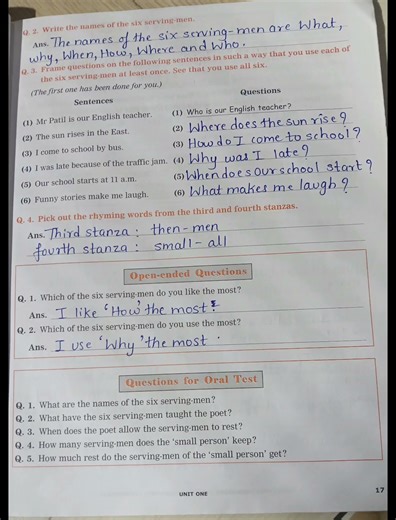 Q. 2. Write the names of the six serving-men.
Ans. The names of the six serving-men are What,
why, When, How, Where and Who.
Q. 3. Frame questions on the following sentences in such a way that you use each of
the six serving-men at least once. See that you use all six.
(The first one has been done for you.)
Sentences Questions
(1) Mr Patil is our English teacher. (1) Who is our English teacher?
(2) The sun rises in the East. (2) Where does the sun rise?
(3) I come to school by bus. (3) How do I come to school?
(4) I was late because of the traffic jam. (4) Why was I late?
(5) Our school starts at 11 a.m. (5) When does our school start?
(6) Funny stories make me laugh. (6) What makes me laugh?
Q. 4. Pick out the rhyming words from the third and fourth stanzas.
Ans. Third stanza : then-men
fourth stanza : small-all
Open-ended Questions
Q. 1. Which of the six serving-men do you like the most?
Ans. I like 'How' the most.
Q. 2. Which of the six serving-men do you use the most?
Ans. I use 'Why' the most.
Questions for Oral Test
Q. 1. What are the names of the six serving-men?
Q. 2. What have the six serving-men taught the poet?
Q. 3. When does the poet allow the serving-men to rest?
Q. 4. How many serving-men does the 'small person' keep?
Q. 5. How much rest do the serving-men of the 'small person' get?
UNIT ONE 17